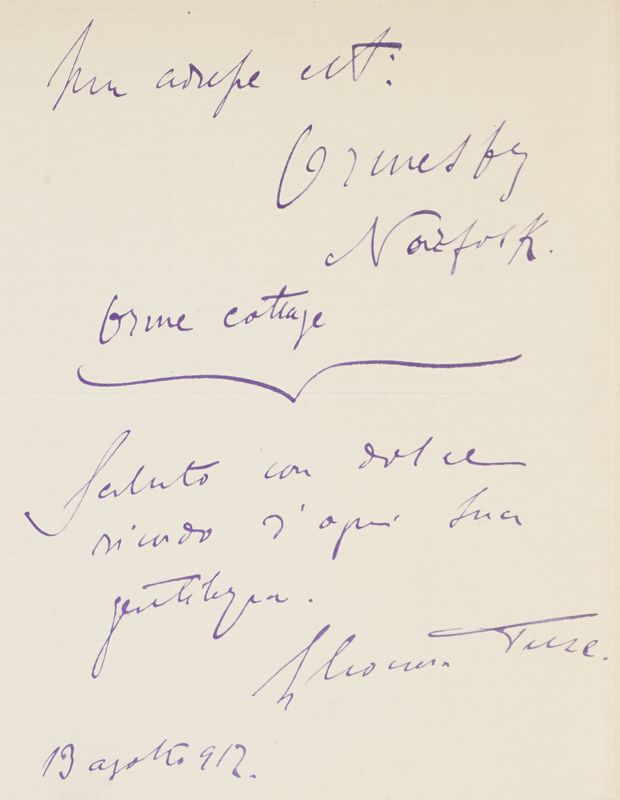 Mon adresse est:
Ormesby
Norfolk.
Orme cottage
Saluto con dolce
ricordo d'ogni sua
gentilezza.
Eleonora Duse.
13 agosto 912.